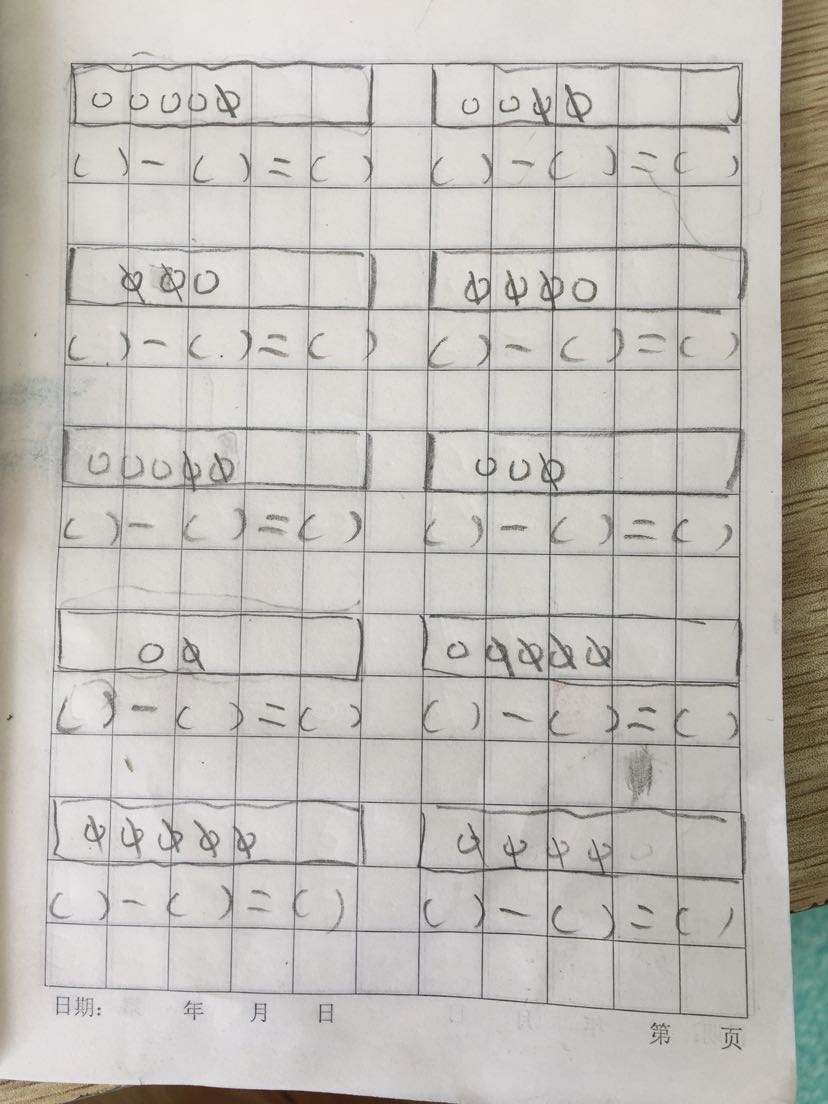 ( ) - ( ) = ( ) ( ) - ( ) = ( )
( ) - ( ) = ( ) ( ) - ( ) = ( )
( ) - ( ) = ( ) ( ) - ( ) = ( )
( ) - ( ) = ( ) ( ) - ( ) = ( )
( ) - ( ) = ( ) ( ) - ( ) = ( )
日期: 年 月 日
第 页